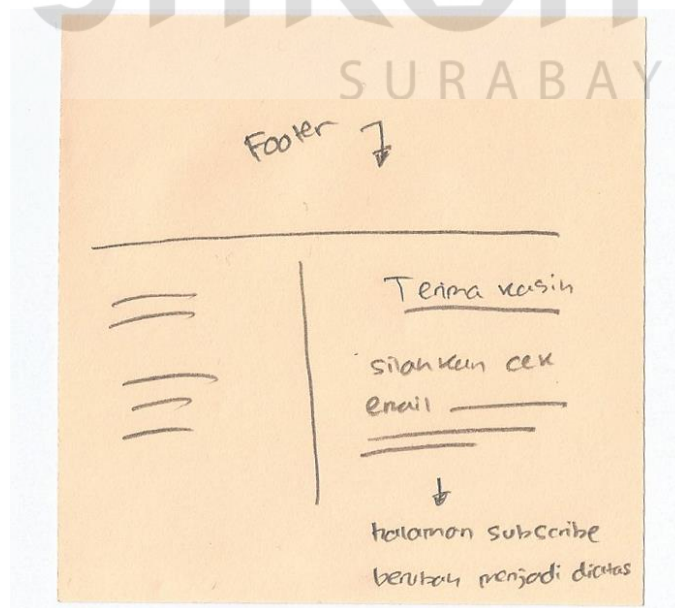 SURABAY
Footer
Terima kasih
silahkan cek
email
halaman subscribe
berubah menjadi diatas